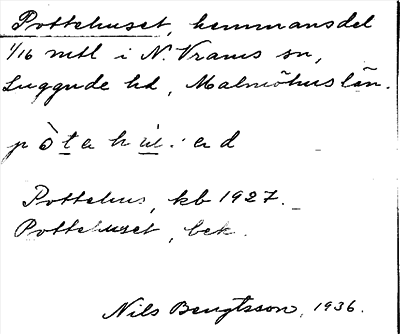 Pottehuset, hemmansdel
1/16 mtl i N. Vrams sn,
Luggude hd, Malmöhus län.
Pottehus, kb 1927.
Pottehuset, bek.
Nils Bengtsson, 1936.